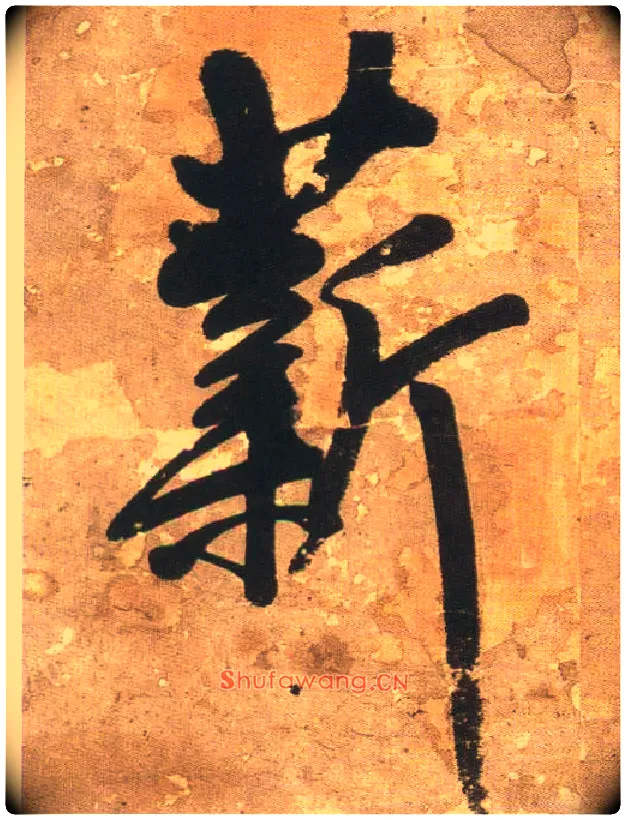 薪
Shufawang.CN